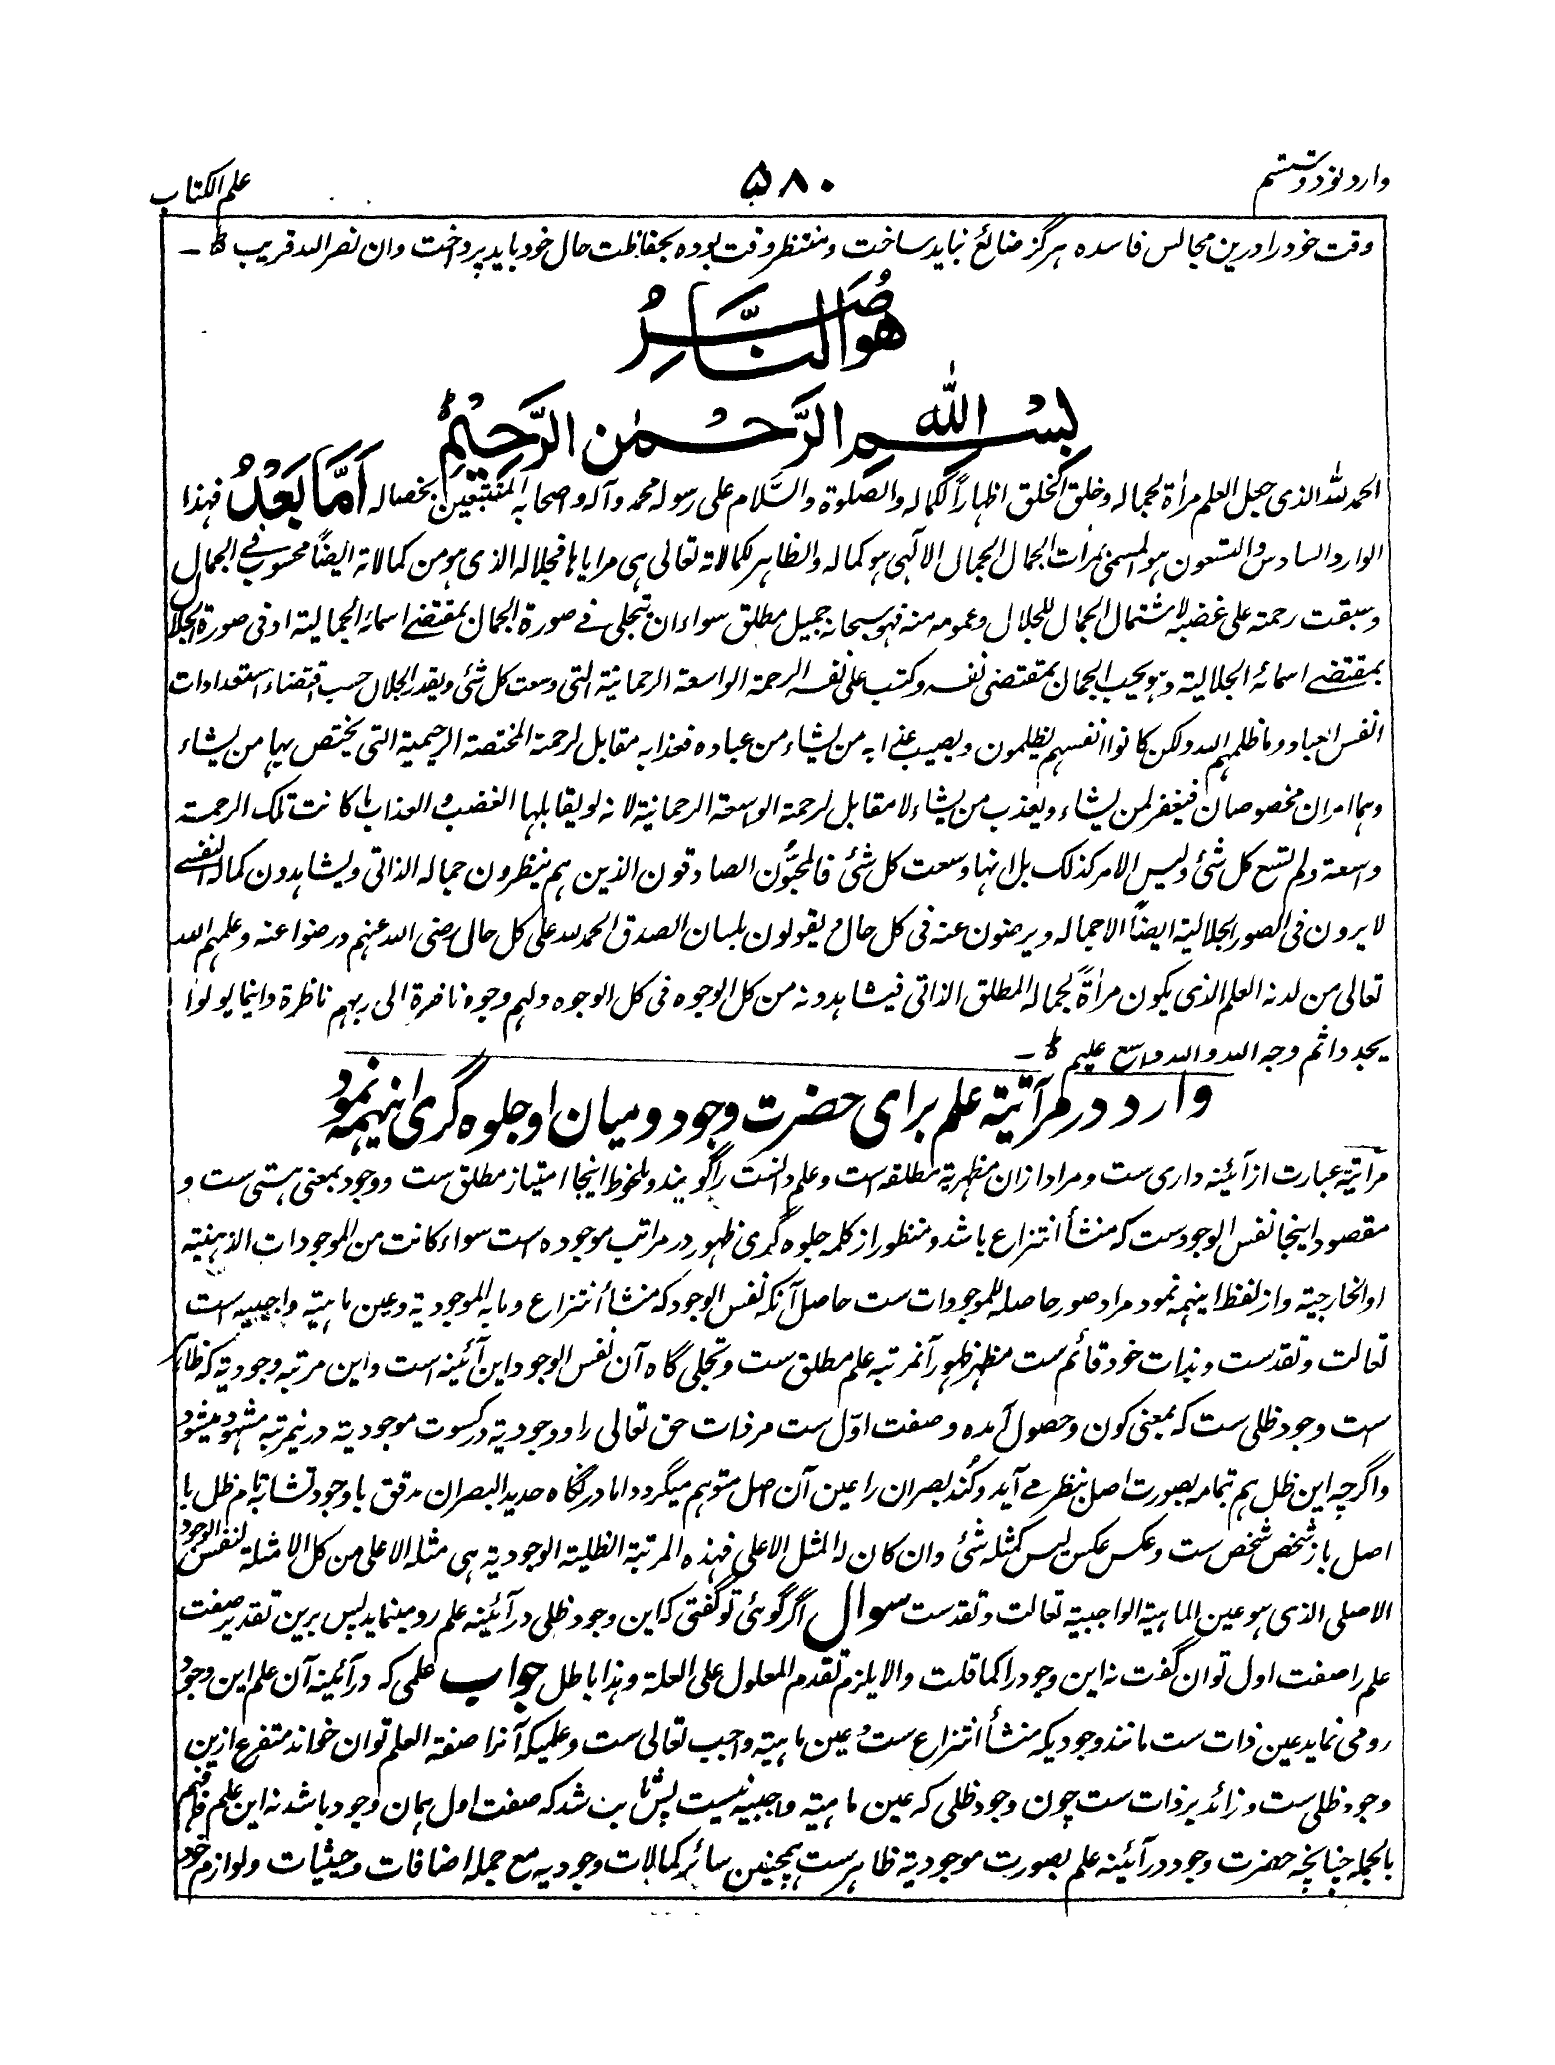 وارد نود و ششم
۵۸۰
علم الکتاب
وقت خود را درین مجالس فاسده هرگز ضائع نباید ساخت و منتظر وقت بوده بحفاظت حال خود باید پرداخت وان نصر الله قریب ؕ ۔
هو الناصرُ
بِسْمِ اللهِ الرَّحْمٰنِ الرَّحِیْمِؕ
الحمد لله الذی جعل العلم مرأة لجماله وخلق الخلق اظهاراً لکماله والصلوة والسَّلام علی رسوله محمد وآله واصحابه المتبعین بخصاله اَمَّا بَعْدُ فهذا
الوارد السادس والتسعون هو المسمی بمرات الجمال الجمال الالهی هو کماله والظاهر لکمالاته تعالی هی مرایاها فجلاله الذی هو من کمالاته ایضاً محسوب فی الجمال
وسبقت رحمته علی غضبه لاشتمال الجمال للجلال وعمومه منه فهو سبحانه جمیل مطلق سواء ان یتجلی فی صورة الجمال بمقتضے اسمائه الجمالیة او فی صورة الجلال
بمقتضے اسمائه الجلالیة وهو یحب الجمال بمقتضی نفسه وکتب علی نفسه الرحمة الواسعة الرحمانیة التی وسعت کل شئ ویقدر الجلال حسب اقتضاء استعدادات
انفس العباد وما ظلمهم الله ولکن کانوا انفسهم یظلمون ویصیب عذابه من یشاء من عباده فعذابه مقابل لرحمة المختصة الرحیمیة التی یختص بها من یشاء
وهما امران مخصوصان فیغفر لمن یشاء ویعذب من یشاء لا مقابل لرحمة الواسعة الرحمانیة لانه لو یقابلها الغضب والعذاب ما کانت تلک الرحمة
واسعة ولم تسع کل شئ ولیس الامر کذلک بل انها وسعت کل شئ فالمحبُّون الصادقون الذین هم ینظرون جماله الذاتی ویشاهدون کماله النفسے
لا یرون فی الصور الجلالیة ایضاً الا جماله ویرضون عنه فی کل حال ویقولون بلسان الصدق الحمد لله علی کل حال رضی الله عنهم ورضوا عنه وعلمهم الله
تعالی من لدنه العلم الذی یکون مرأةً لجماله المطلق الذاتی فیشاهدونه من کل الوجوه فی کل الوجوه ولهم وجوه ناضرة الی ربهم ناظرة واینما یولوا
یجدوا ثم وجه الله والله واسع علیم ؕ ۔
وارد در مرآتیة علم برای حضرت وجود و میان او جلوه گری اینهمه نمود
مرآتیة عبارت از آئینه داری ست و مراد ازان مظهریة مطلقه است و علم دانست را گویند و ملحوظ اینجا امتیاز مطلق ست و وجود بمعنی هستی ست و
مقصود اینجا نفس الوجود ست که منشأ انتزاع باشد و منظور از کلمه جلوه گری ظهور در مراتب موجوده است سواء کانت من الموجودات الذهنیة
او الخارجیة و از لفظ اینهمه نمود مراد صور حاصله للموجودات ست حاصل آنکه نفس الوجود که منشأ انتزاع و ما به الموجودیة و عین ماهیة واجبیه است
تعالت وتقدست و بذات خود قائم ست مظهر ظهور آنمرتبه علم مطلق ست و تجلی گاه آن نفس الوجود این آئینه است و این مرتبه وجودیة که ظاهر
ست وجود ظلی ست که بمعنی کون و حصول آمده و صفت اوّل ست مر ذات حق تعالی را و وجودیة در کسوت موجودیة درینمرتبه مشهود میشود
و اگرچه این ظل هم بتمامه بصورت اصل بنظر می آید و کُند بصران را عین آن اصل متوهم میگردد اما در نگاه حدید البصران مدقق با وجود تشابه تام ظل با
اصل باز شخص شخص ست و عکس عکس لیس کمثله شئ وان کان له المثل الاعلی فهذه المرتبة الظلیة الوجودیة هی مثله الاعلی من کل الامثلة لنفس الوجود
الاصلی الذی هو عین الماهیة الواجبیة تعالت وتقدست سوال اگر گوئی تو گفتی که این وجود ظلی در آئینه علم رو مینماید پس برین تقدیر صفت
علم را صفت اول توان گفت نه این وجود را کما قلت والا یلزم تقدم المعلول علی العلة وهذا باطل جواب علمی که در آئینه آن علم این وجود
رو می نماید عین ذات ست مانند وجودیکه منشأ انتزاع ست و عین ماهیة واجب تعالی ست و علمیکه آنرا صفة العلم توان خواند متفرع ازین
وجود ظلی ست و زائد بر ذات ست چون وجود ظلی که عین ماهیة واجبیه نیست پس ثابت شد که صفت اول همان وجود باشد نه این علم فافهم
بالجمله چنانچه حضرت وجود در آئینه علم بصورت موجودیة ظاهر ست همچنین سائر کمالات وجودیه مع جمله اضافات و حیثیات و لوازم خود